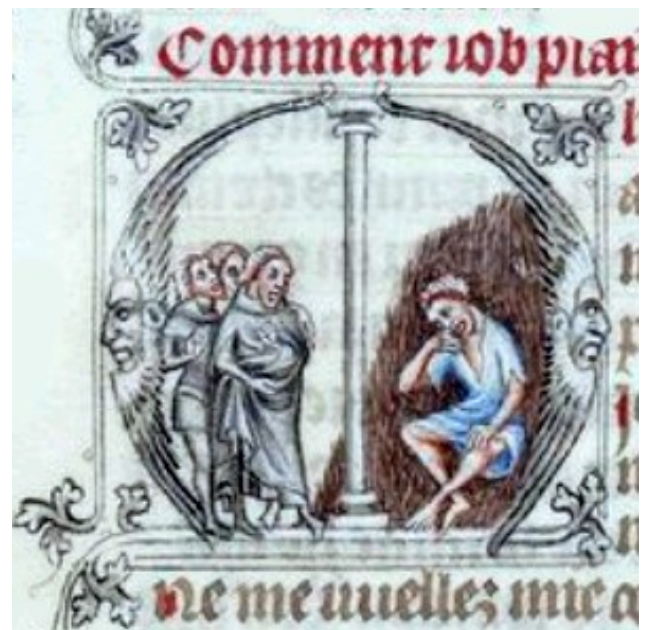 Comment iob plai
ne me uuellez mie